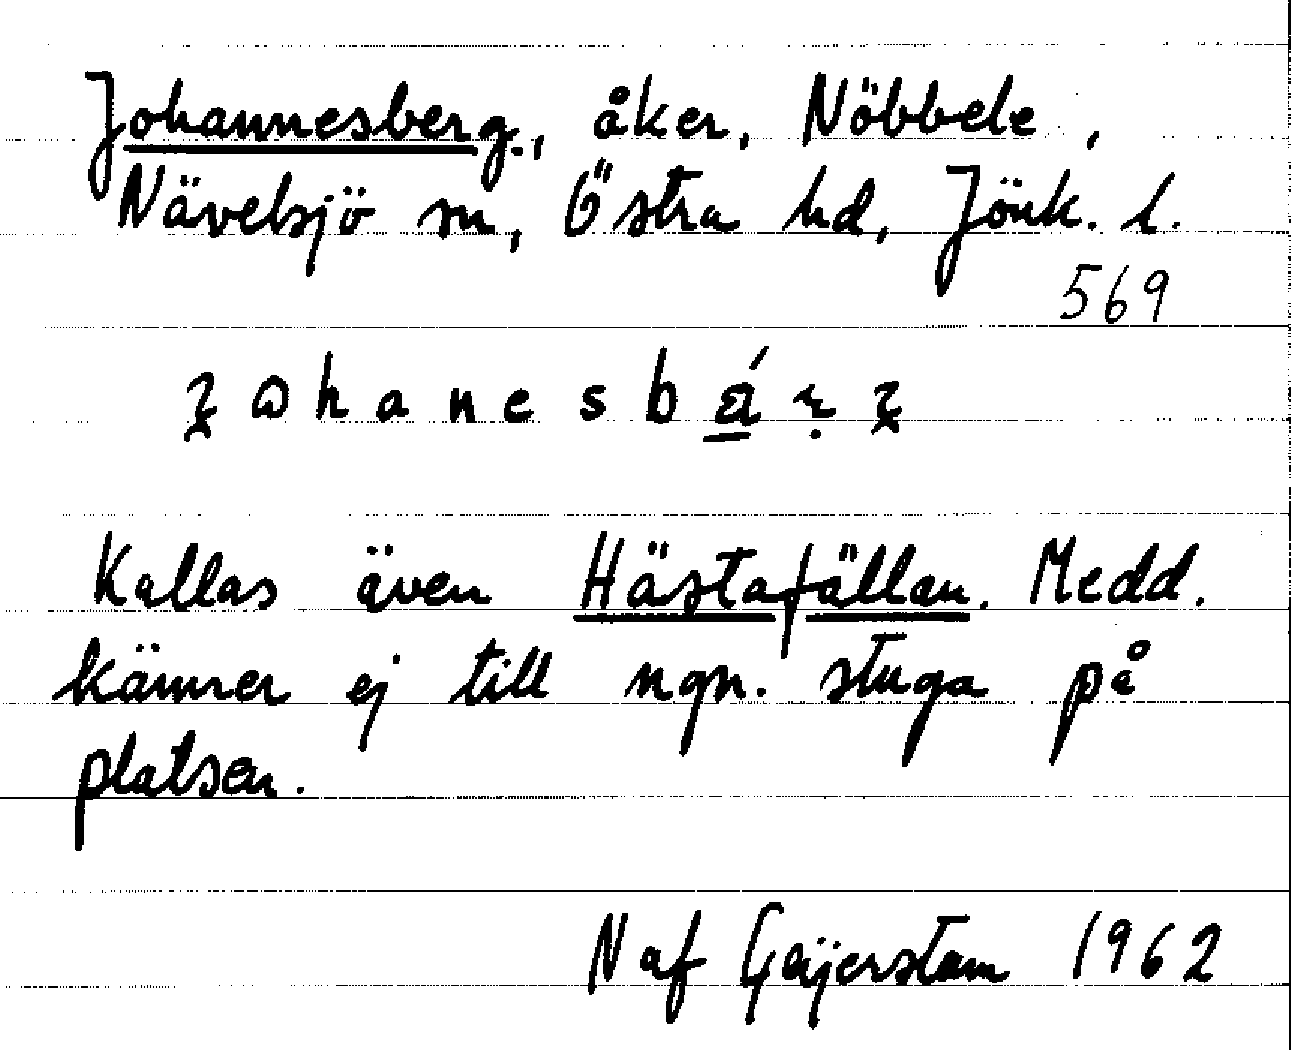 Johannesberg, åker, Nöbbele,
Nävelsjö sn, Östra hd, Jönk. l.
569
Kallas även Hästafällan. Medd.
känner ej till ngn. stuga på
platsen.
Naf Geijerstam 1962